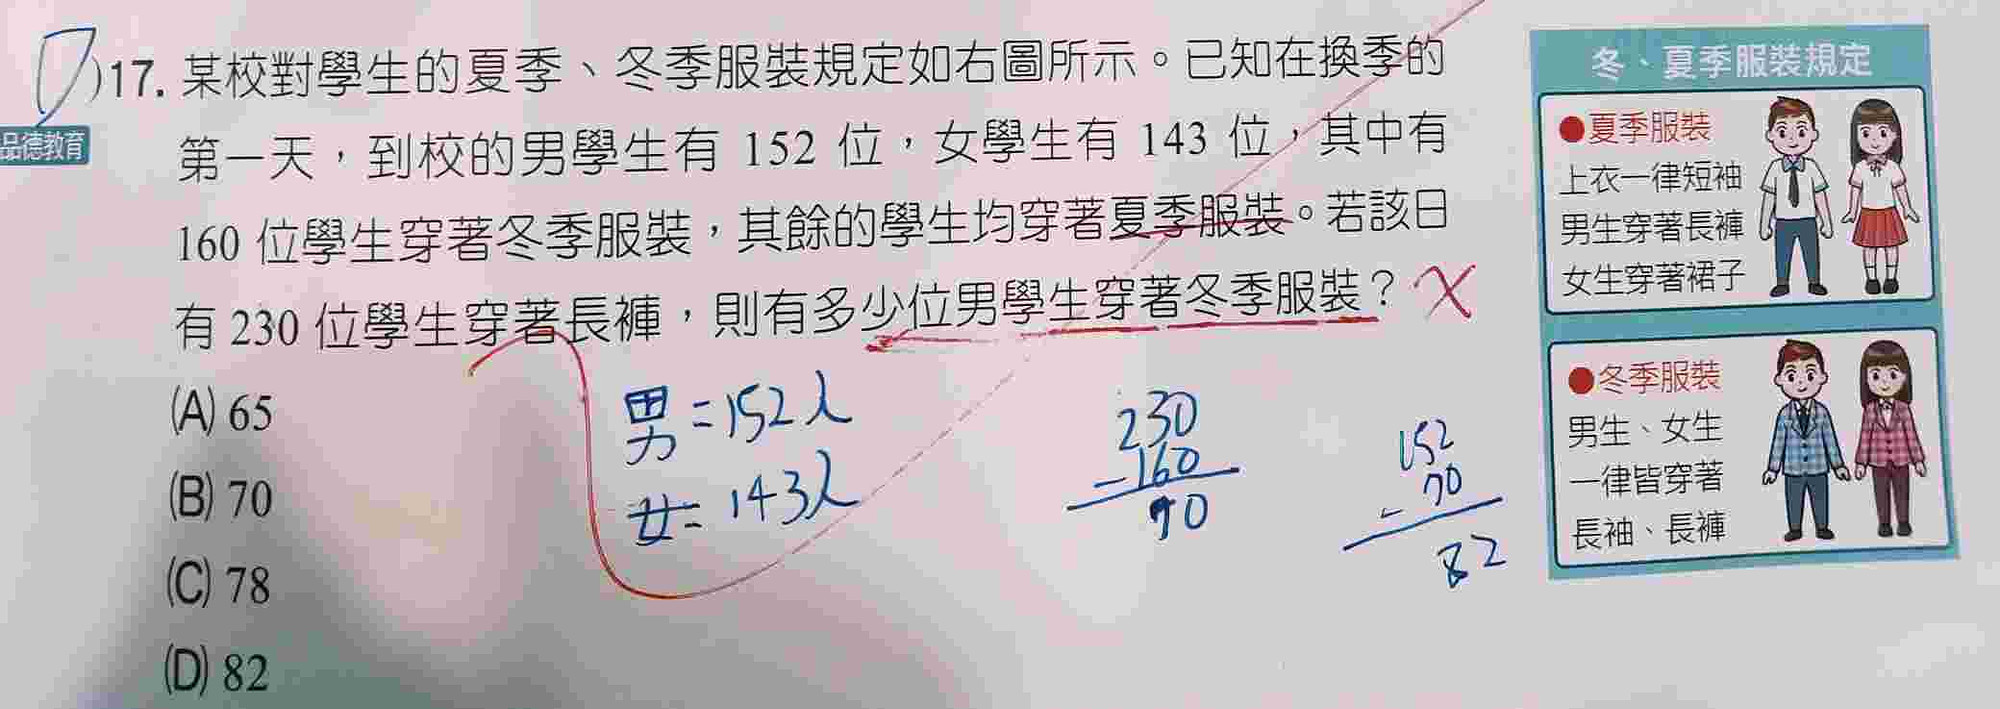 D)17. 某校對學生的夏季、冬季服裝規定如右圖所示。已知在換季的
品德教育
第一天，到校的男學生有 152 位，女學生有 143 位，其中有
160 位學生穿著冬季服裝，其餘的學生均穿著夏季服裝。若該日
有 230 位學生穿著長褲，則有多少位男學生穿著冬季服裝？ X
(A) 65
(B) 70
(C) 78
(D) 82
男=152人
女=143人
230
-160
70
152
- 70
82
冬、夏季服裝規定
●夏季服裝
上衣一律短袖
男生穿著長褲
女生穿著裙子
●冬季服裝
男生、女生
一律皆穿著
長袖、長褲